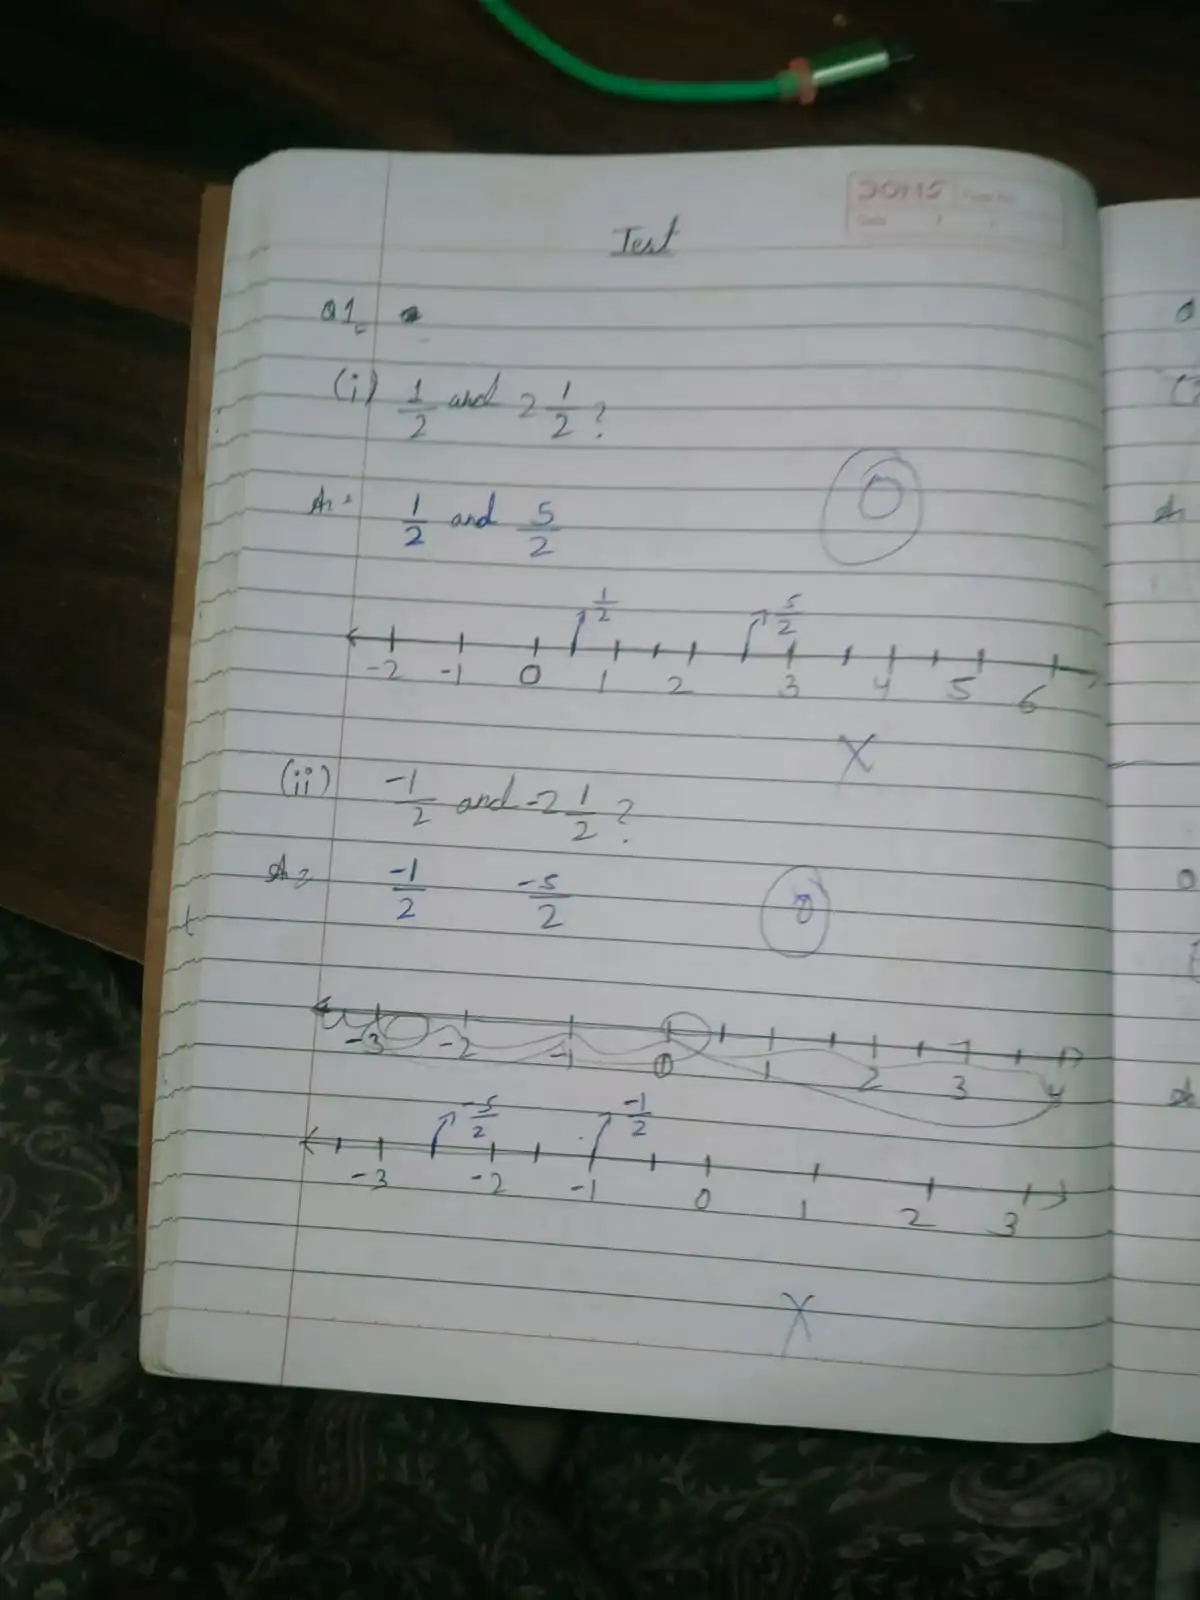 JOMS Page No.
Date / /
Test
Q1.
(i) 1/2 and 2 1/2 ?
0
1/2 and 5/2
1/2 5/2
-2 -1 0 1 2 3 4 5 6
X
(ii) -1/2 and -2 1/2 ?
-1/2 -5/2
0
-3 -2 -1 0 1 2 3 4
-5/2 -1/2
-3 -2 -1 0 1 2 3
X